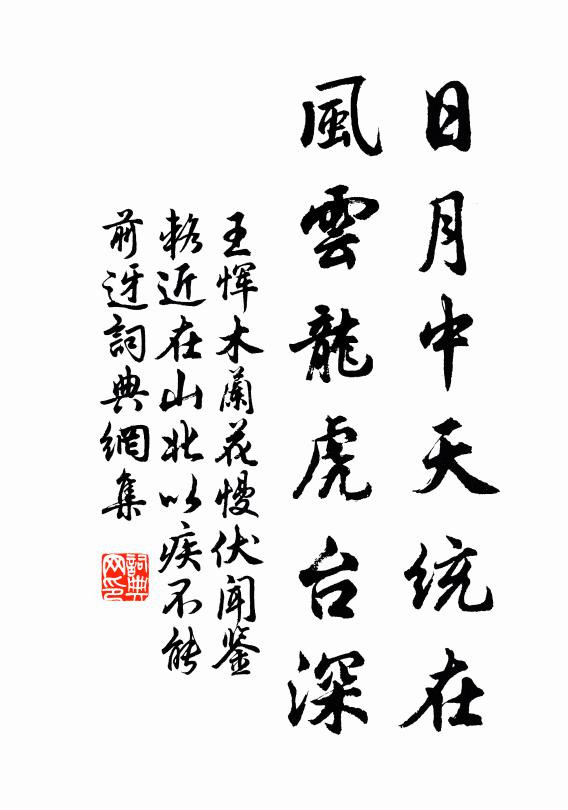 日月中天统在
風雲龍虎台深
王恽木蘭花慢伏闻鉴
輅近在山北以疾不能
前迓詞典網集
詞典
网印